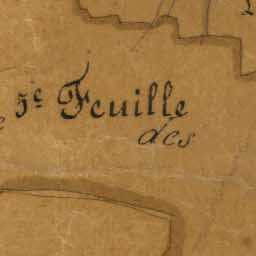 5e Feuille
des